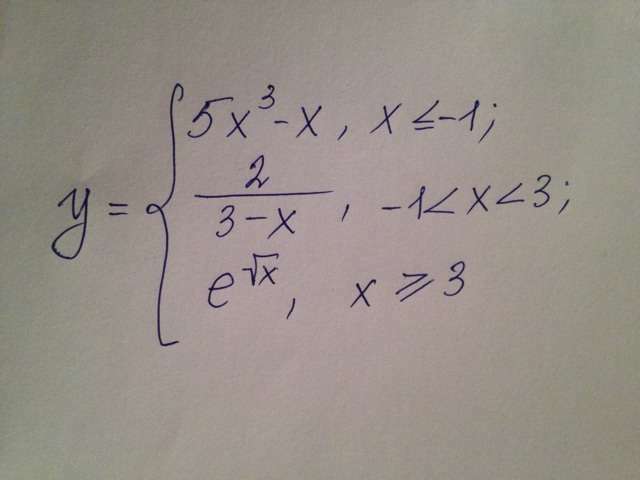 y = { 5x³-x, x ≤ -1;
2/(3-x), -1 < x < 3;
e^√x, x ⩾ 3